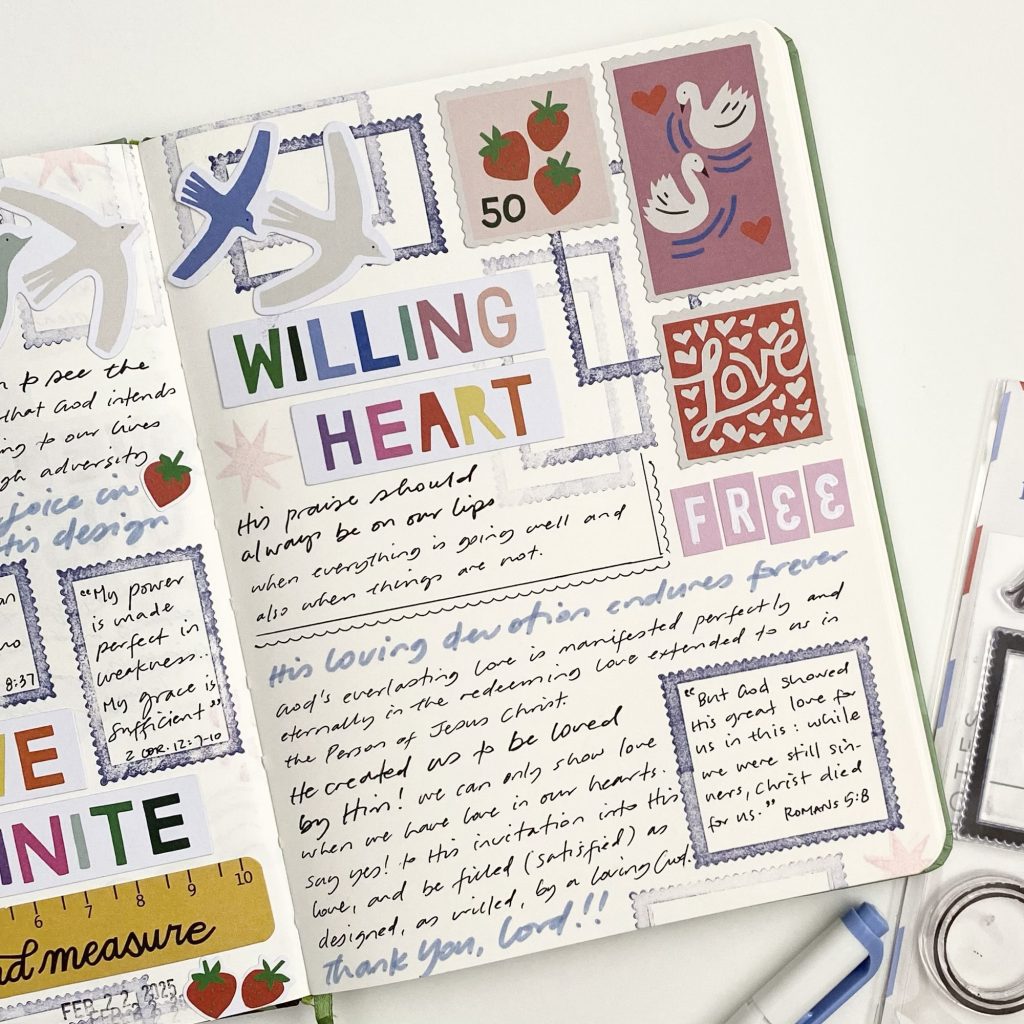 to see the
that God intends
to our lives
adversity
in
His design
8:37
"My power
is made
perfect in
weakness..
My grace is
sufficient"
2 COR. 12:7-10
INITE
6 7 8 9 10
measure
FEB 22 2025
50
WILLING
HEART
LOVE
FREE
His praise should
always be on our lips
when everything is going well and
also when things are not.
His loving devotion endures forever
God's everlasting love is manifested perfectly and
eternally in the redeeming love extended to us in
the Person of Jesus Christ.
He created us to be loved
by Him! we can only show love
when we have love in our hearts.
say yes! to His invitation into His
love, and be filled (satisfied) as
designed, as willed, by a loving God.
Thank You, Lord!!
"But God showed
His great love for
us in this: while
we were still sin-
ners, Christ died
for us."
ROMANS 5:8